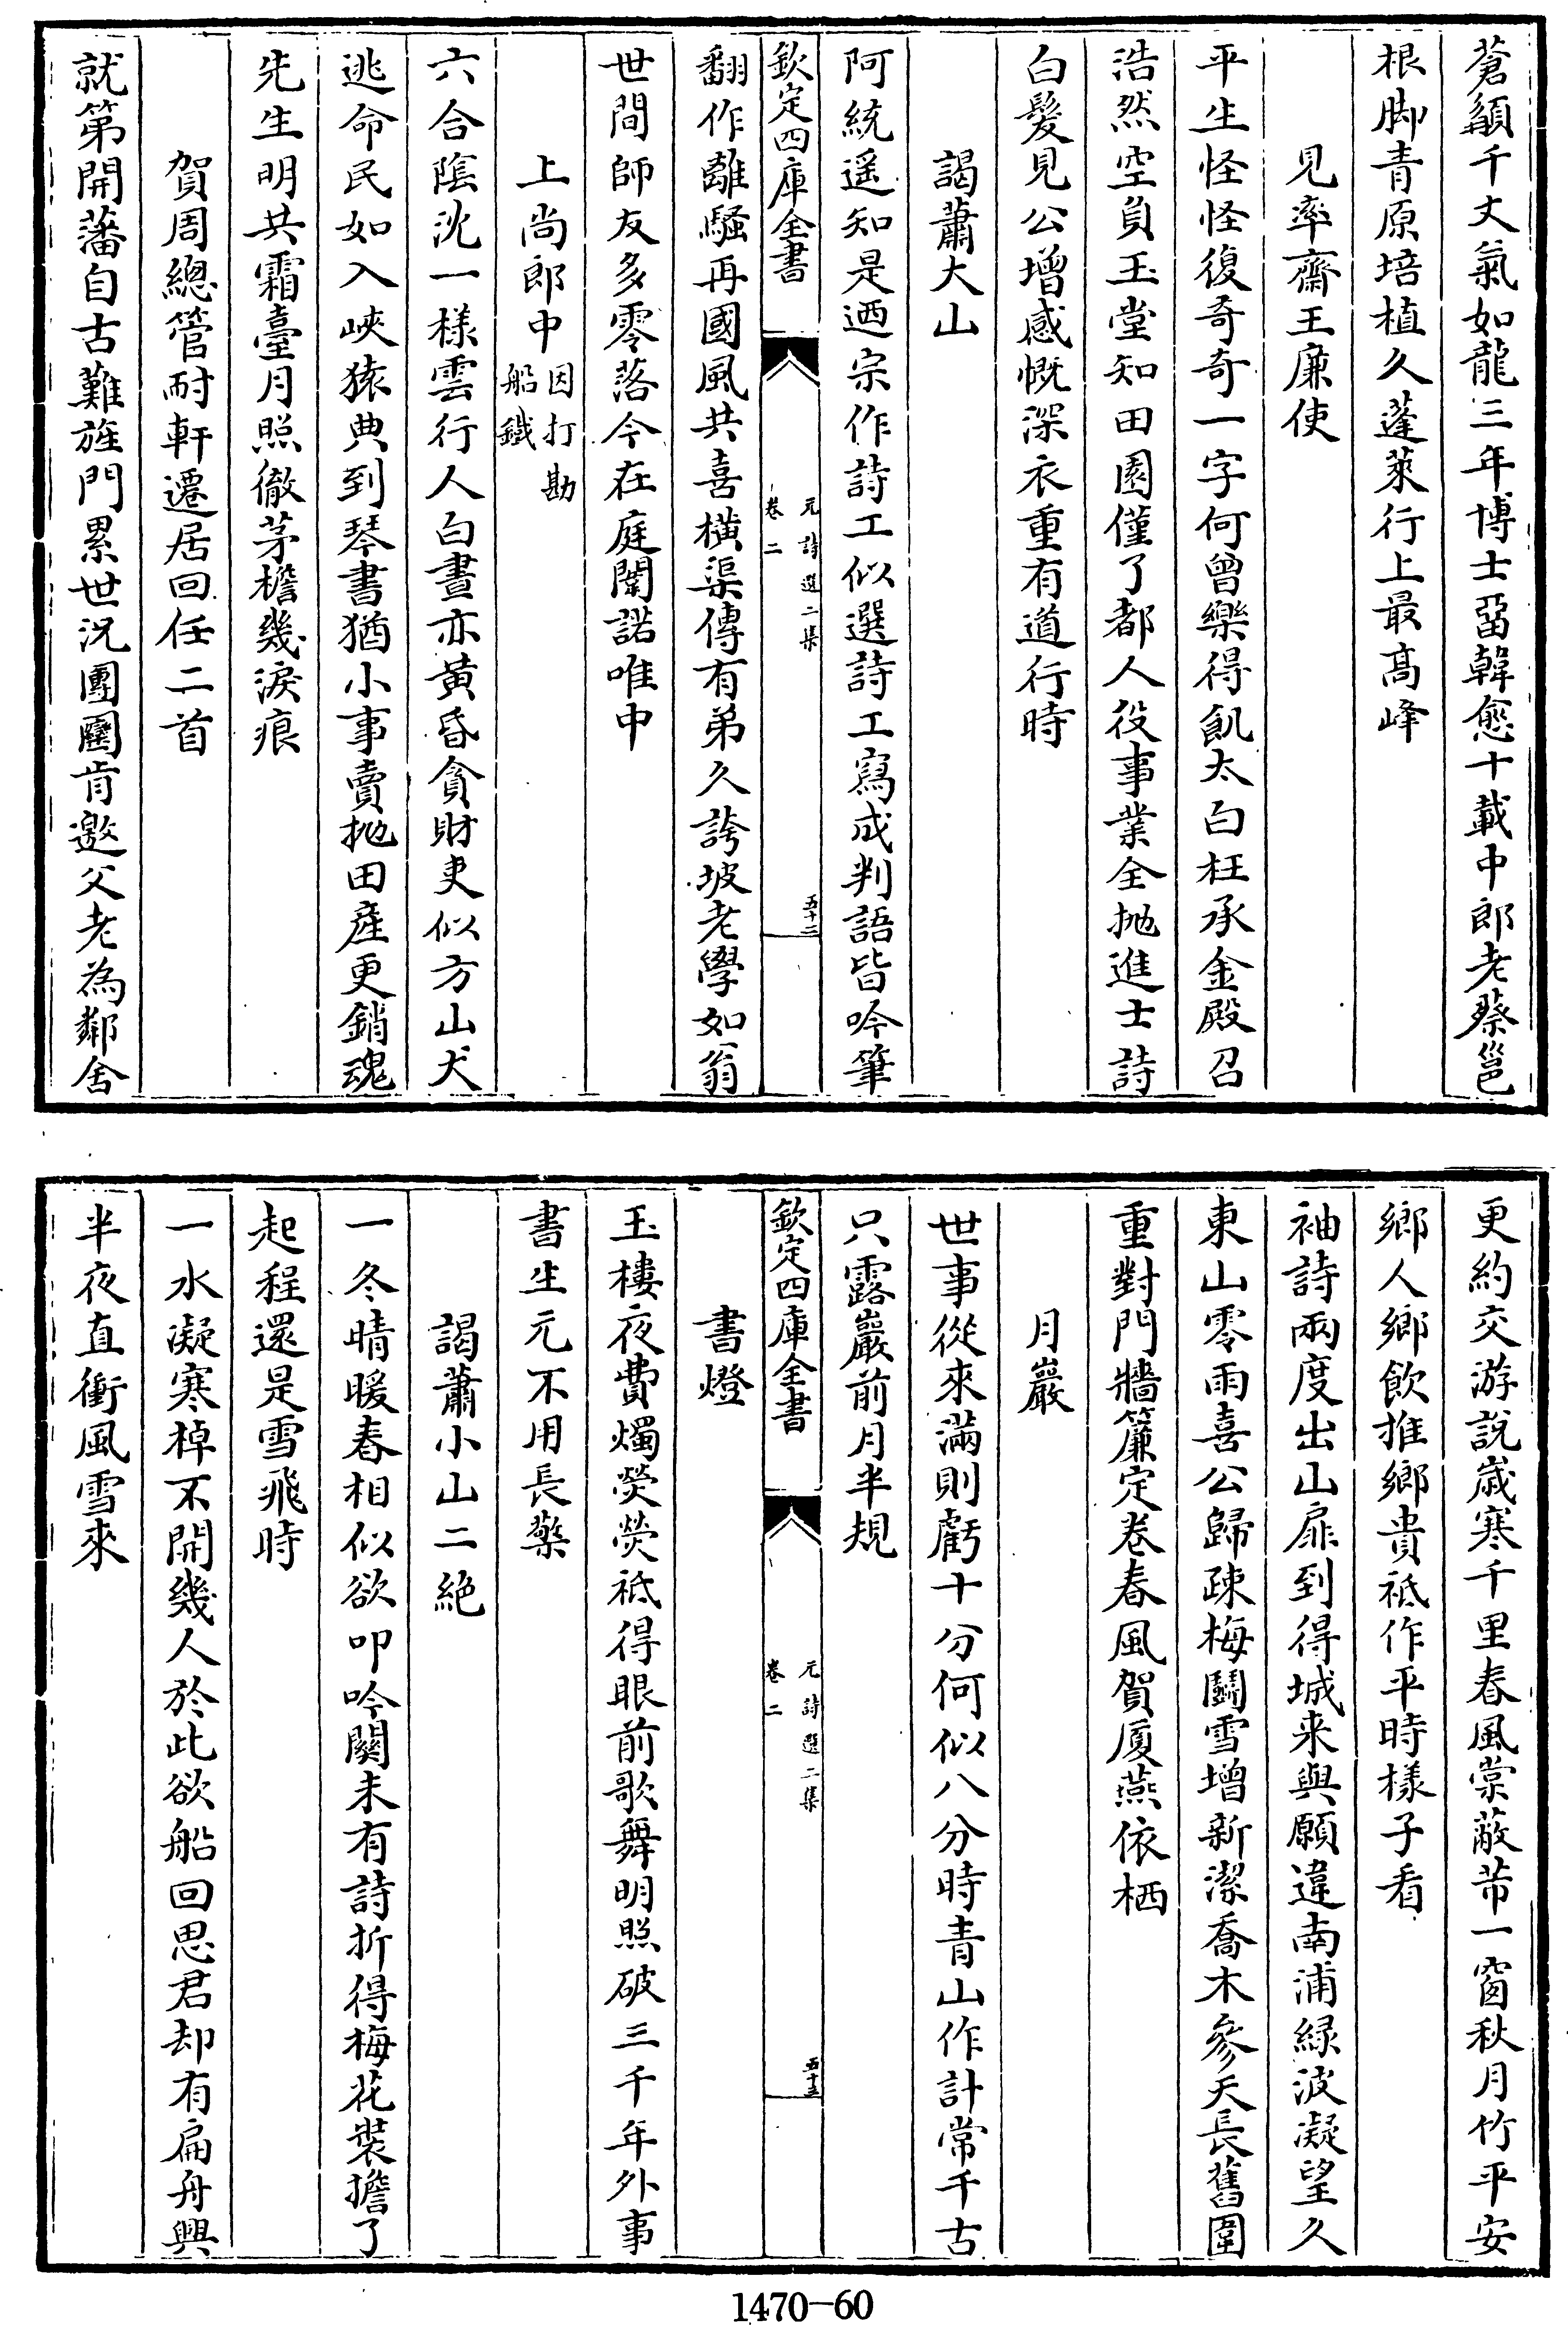 蒼顔千丈氣如龍三年博士留韓愈十載中郎老蔡邕
根脚青原培植久蓬萊行上最高峰
見率齋王廉使
平生怪怪復奇奇一字何曾樂得飢太白枉承金殿召
浩然空負玉堂知田園僅了都人役事業全抛進士詩
白髮見公增感慨深衣重有道行時
謁蕭大山
阿統遥知是迺宗作詩工似選詩工寫成判語皆吟筆
欽定四庫全書
元詩選二集
卷二
五十二
翻作離騷再國風共喜横渠傳有弟久誇坡老學如翁
世間師友多零落今在庭闈諾唯中
上尚郎中因打勘
船鐵
六合陰沈一様雲行人白晝亦黄昏貪財吏似方山犬
逃命民如入峽猿典到琴書猶小事賣抛田産更銷魂
先生明共霜臺月照徹茅檐幾淚痕
賀周總管耐軒遷居回任二首
就第開藩自古難旌門累世況團圞肯邀父老為鄰舍
更約交游説歲寒千里春風棠蔽芾一窗秋月竹平安
鄉人鄉飲推鄉貴祗作平時樣子看
袖詩兩度出山扉到得城来與願違南浦緑波凝望久
東山零雨喜公歸疎梅鬭雪增新潔喬木參天長舊圍
重對門牆簾定卷春風賀厦燕依栖
月巖
世事從來滿則虧十分何似八分時青山作計常千古
只露巖前月半規
欽定四庫全書
元詩選二集
卷二
五十三
書燈
玉樓夜費燭熒熒祗得眼前歌舞明照破三千年外事
書生元不用長檠
謁蕭小山二絶
一冬晴暖春相似欲叩吟關未有詩折得梅花裝擔了
起程還是雪飛時
一水凝寒棹不開幾人於此欲船回思君却有扁舟興
半夜直衝風雪來
1470—60